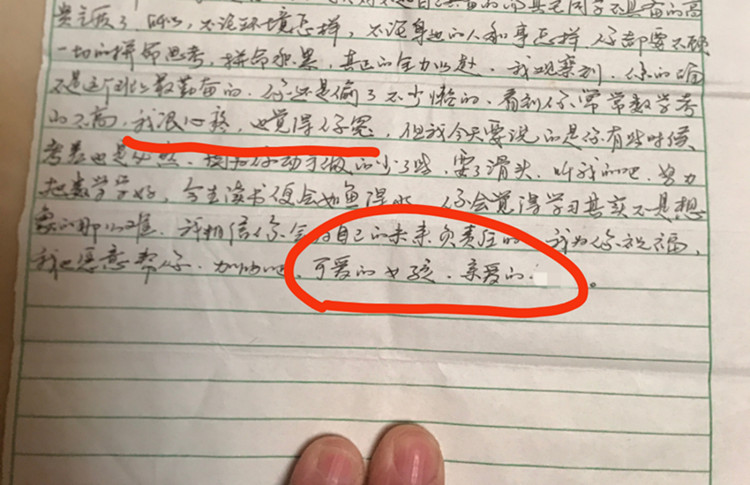 贵主板了。所以，不论环境怎样，不论身边的人和事怎样，你都要不顾
一切的拼命思考，拼命积累，真正的全力以赴。我观察到，你的确
不是这个班最勤奋的，你还是偷了不少懒的，看到你常常数学考
的不高，我很心疼，也觉得你冤，但我今天要说的是你有些时候
考差也是必然，因为你动手做的少了些，耍了滑头，听我的吧，努力
把数学学好，今生读书便会如鱼得水，你会觉得学习其实不是想
象的那么难，我相信你会对自己的未来负责任的，我为你祝福，
我也愿意帮你，加油吧，可爱的女孩，亲爱的